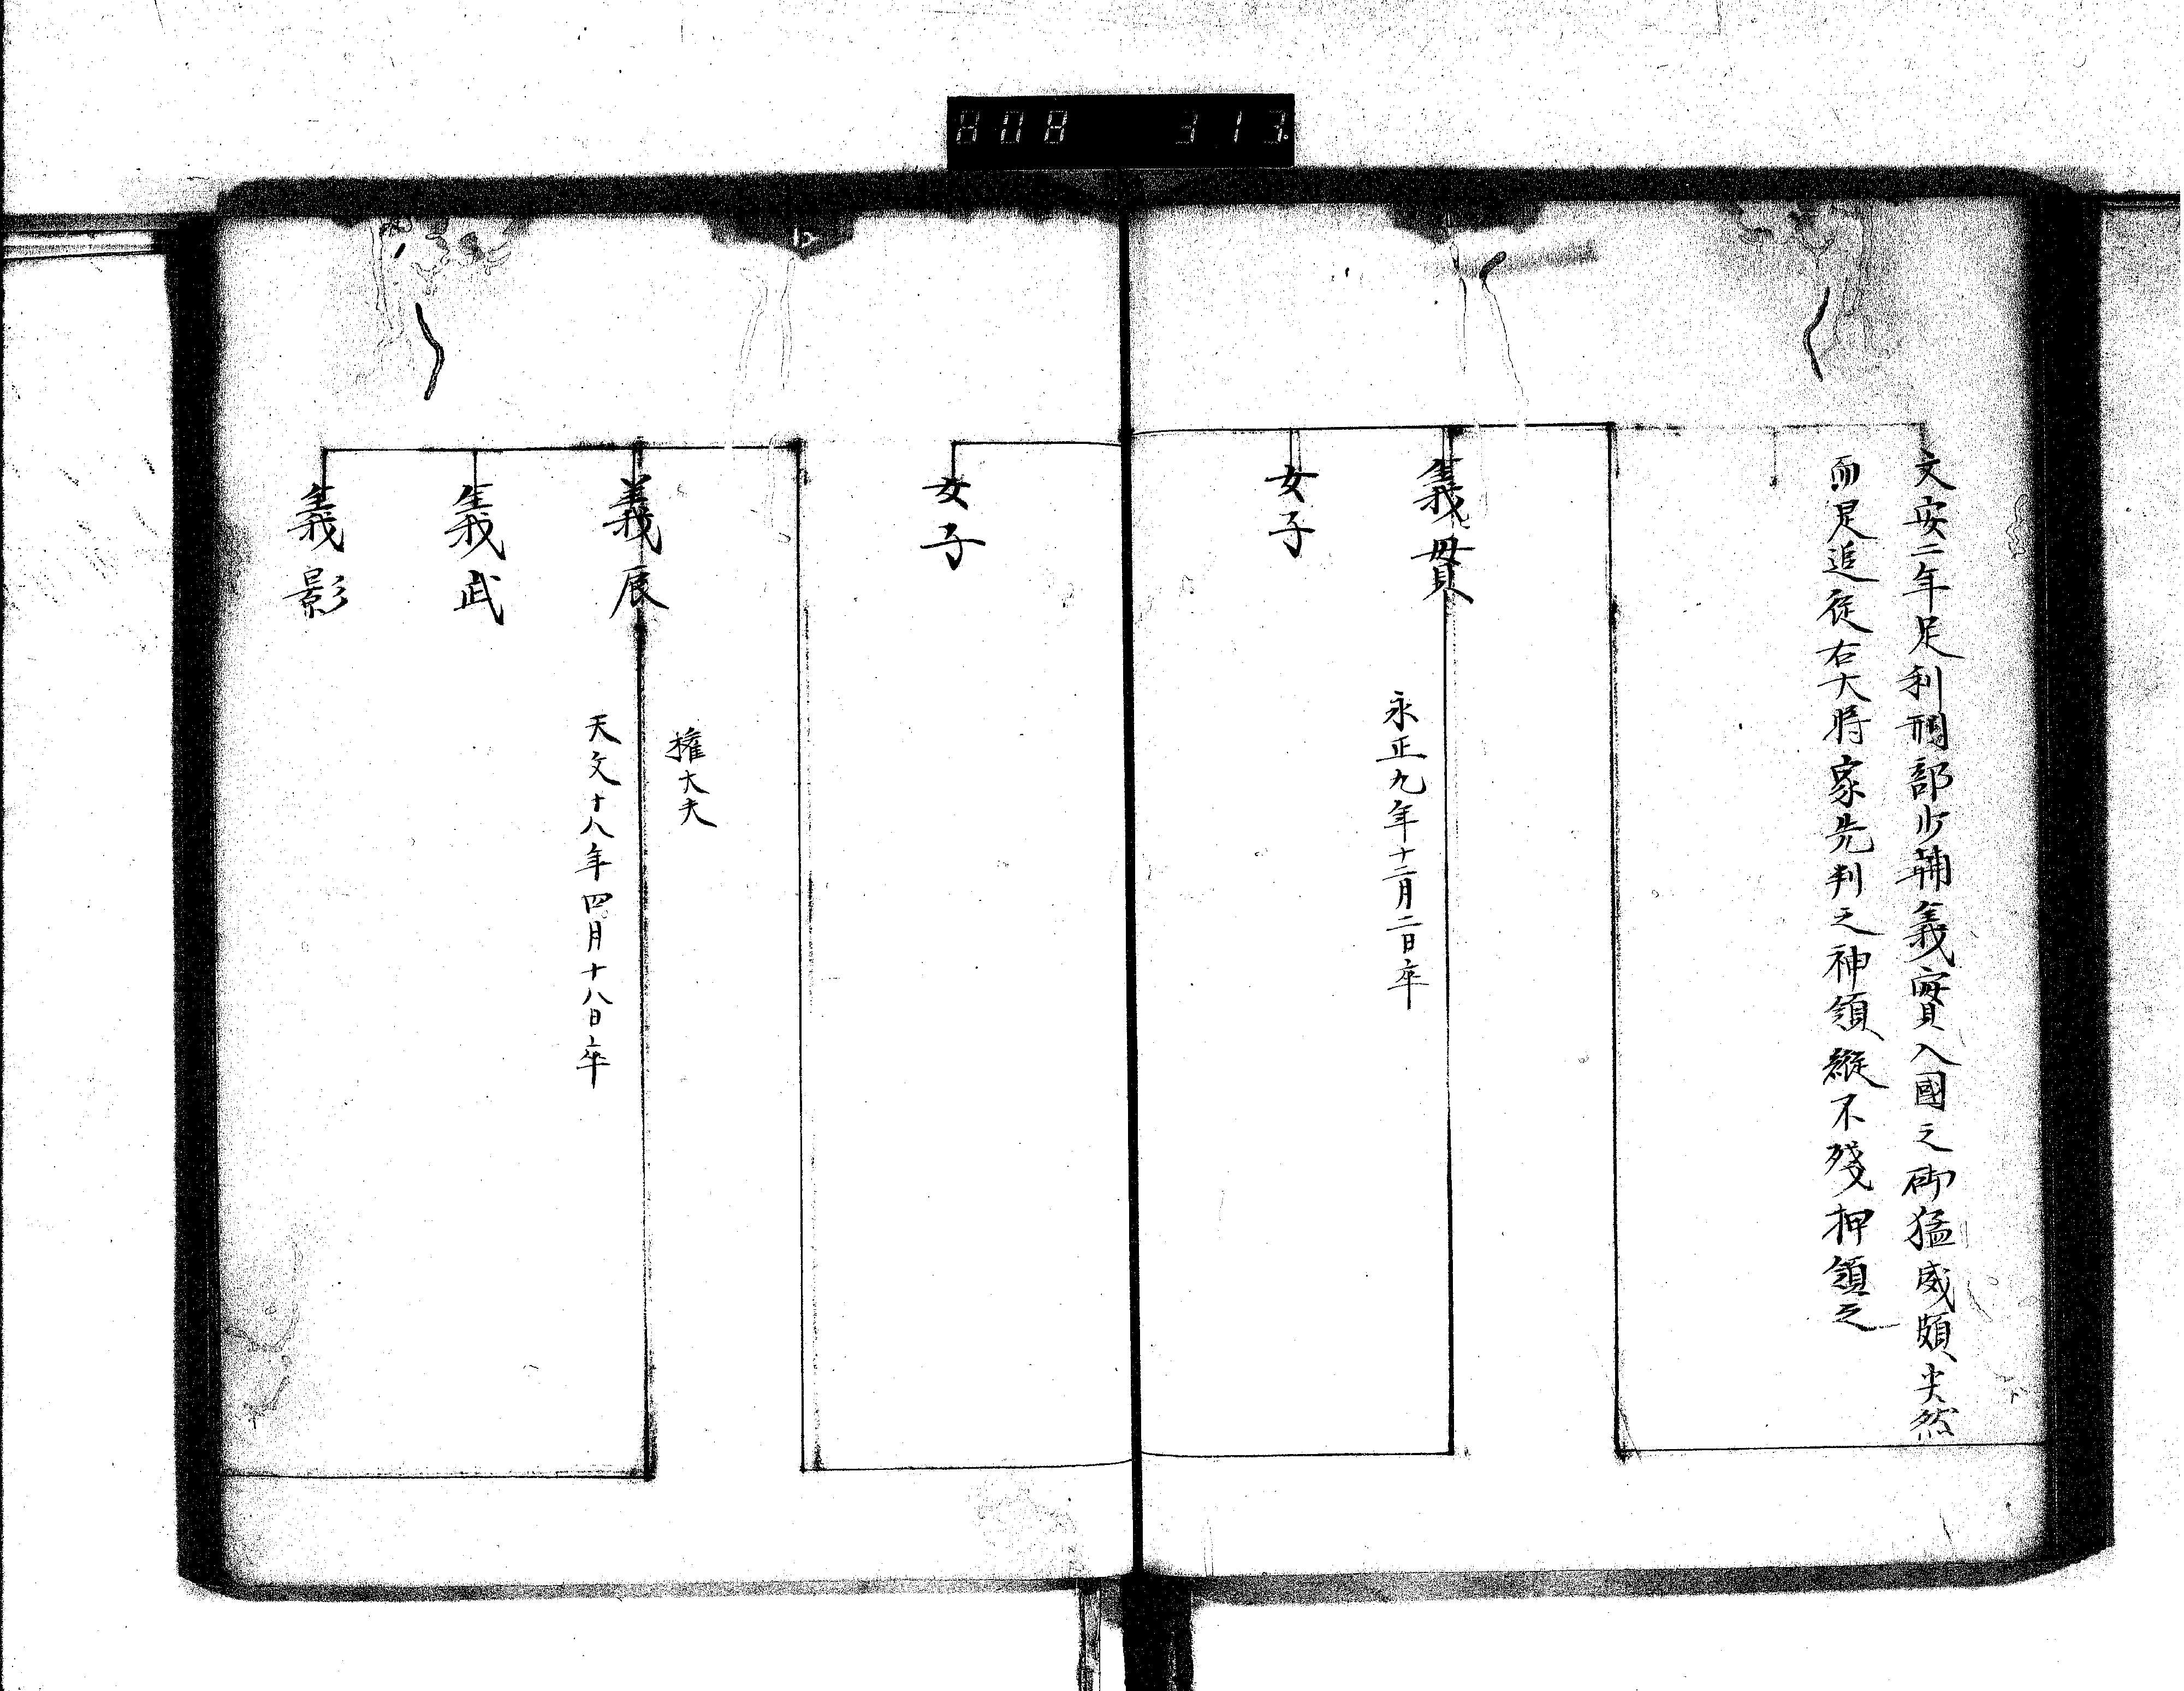 808 313
文安二年足利刑部少輔義實入國之砌猛威頗尖然
而是追従右大將家先判之神領縦不残押領之
義貫
永正九年十二月二日卒
女子
女子
義辰
權大夫
天文十八年四月十八日卒
義武
義影